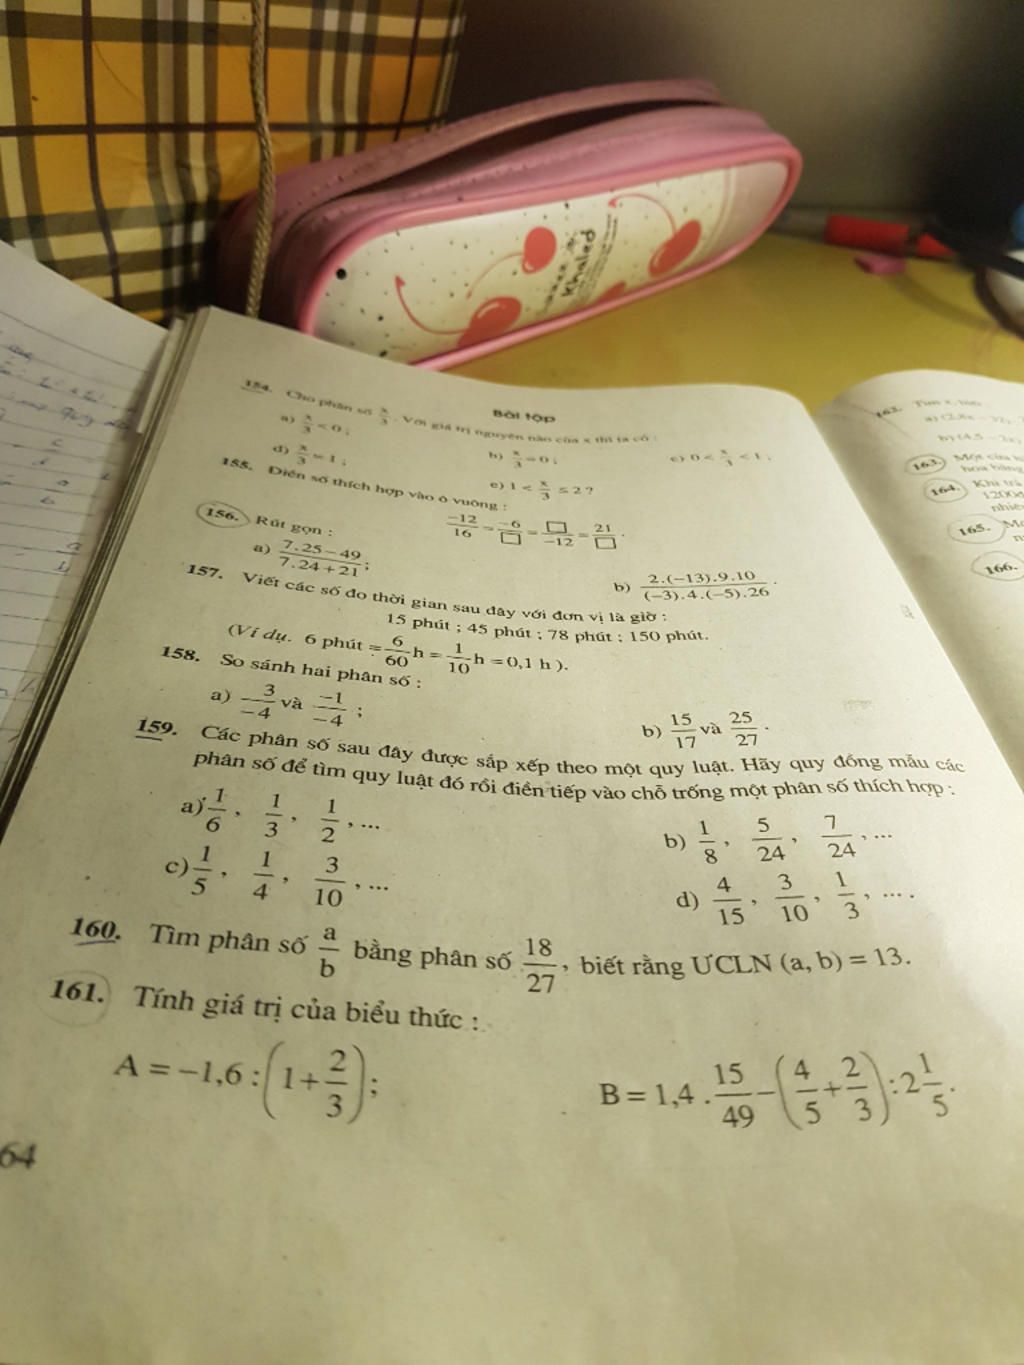 Bài tập
154. Cho phân số x/3. Với giá trị nguyên nào của x thì ta có :
a) x/3 < 0 ;
b) x/3 = 0 ;
c) 0 < x/3 < 1 ;
d) x/3 = 1 ;
e) 1 < x/3 ≤ 2 ?
155. Điền số thích hợp vào ô vuông :
-12/16 = -6/□ = □/-12 = 21/□ .
156. Rút gọn :
a) (7.25 - 49)/(7.24 + 21) ;
b) (2.(-13).9.10)/((-3).4.(-5).26) .
157. Viết các số đo thời gian sau đây với đơn vị là giờ :
15 phút ; 45 phút ; 78 phút ; 150 phút.
(Ví dụ. 6 phút = 6/60 h = 1/10 h = 0,1 h ).
158. So sánh hai phân số :
a) 3/-4 và -1/-4 ;
b) 15/17 và 25/27 .
159. Các phân số sau đây được sắp xếp theo một quy luật. Hãy quy đồng mẫu các
phân số để tìm quy luật đó rồi điền tiếp vào chỗ trống một phân số thích hợp :
a) 1/6 , 1/3 , 1/2 , ...
b) 1/8 , 5/24 , 7/24 , ...
c) 1/5 , 1/4 , 3/10 , ...
d) 4/15 , 3/10 , 1/3 , ... .
160. Tìm phân số a/b bằng phân số 18/27 , biết rằng ƯCLN (a, b) = 13.
161. Tính giá trị của biểu thức :
A = -1,6 : (1 + 2/3) ;
B = 1,4 . 15/49 - (4/5 + 2/3) : 2 1/5 .
64
162. Tìm x,
163. Một cửa
hoa bằng
164. Khi trả
1200đ
165.
166.
Khaled